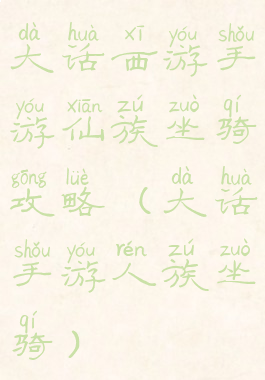 dà huà xī yóu shǒu
大话西游手
yóu xiān zú zuò qí
游仙族坐骑
gōng lüè dà huà
攻略（大话
shǒu yóu rén zú zuò
手游人族坐
qí
骑）